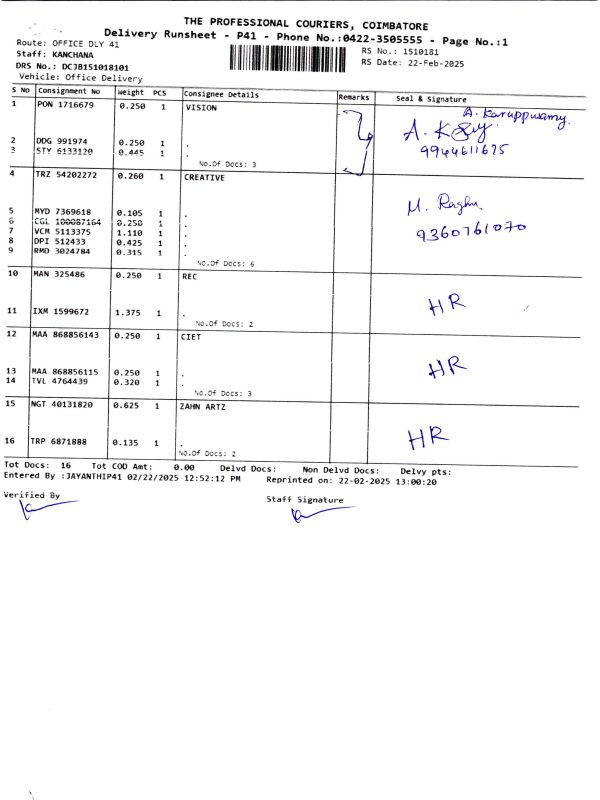 THE PROFESSIONAL COURIERS, COIMBATORE
Delivery Runsheet - P41 - Phone No.:0422-3505555 - Page No.:1
Route: OFFICE DLY 41
RS No.: 1510181
Staff: KANCHANA
RS Date: 22-Feb-2025
DRS No.: DCJB151018101
Vehicle: Office Delivery
S No Consignment No Weight PCS Consignee Details Remarks Seal & Signature
1 PON 1716679 0.250 1 VISION
A. Karuppusamy
2 DDG 991974 0.250 1 .
3 STY 6133120 0.445 1 .
9944611675
No.Of Docs: 3
4 TRZ 54202272 0.260 1 CREATIVE
M. Raghu
5 MYD 7369618 0.105 1 .
6 CGL 100087164 0.250 1 .
7 VCM 5113375 1.110 1 .
9360761070
8 DPI 512433 0.425 1 .
9 RMD 3024784 0.315 1 .
No.Of Docs: 6
10 MAN 325486 0.250 1 REC
HR
11 IXM 1599672 1.375 1 .
No.Of Docs: 2
12 MAA 868856143 0.250 1 CIET
HR
13 MAA 868856115 0.250 1 .
14 TVL 4764439 0.320 1 .
No.Of Docs: 3
15 NGT 40131820 0.625 1 ZAHN ARTZ
HR
16 TRP 6871888 0.135 1 .
No.Of Docs: 2
Tot Docs: 16 Tot COD Amt: 0.00 Delvd Docs: Non Delvd Docs: Delvy pts:
Entered By :JAYANTHIP41 02/22/2025 12:52:12 PM Reprinted on: 22-02-2025 13:00:20
Verified By
Staff Signature